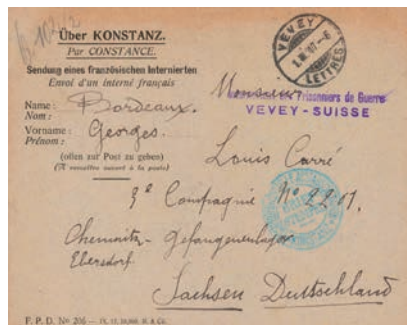 Über KONSTANZ.
Par CONSTANCE.
Sendung eines französischen Internierten
Envoi d'un interné français
Name: Bordeaux.
Nom:
Vorname: Georges.
Prénom:
(offen zur Post zu geben)
(A remettre ouvert à la poste)
VEVEY
LETTRES
Monsieur
Prisonniers de Guerre
VEVEY - SUISSE
Louis Carré
3e Compagnie No 2201.
Chemnitz - Gefangenenlager
Ebersdorf
Sachsen Deutschland
F. P. D. No 206